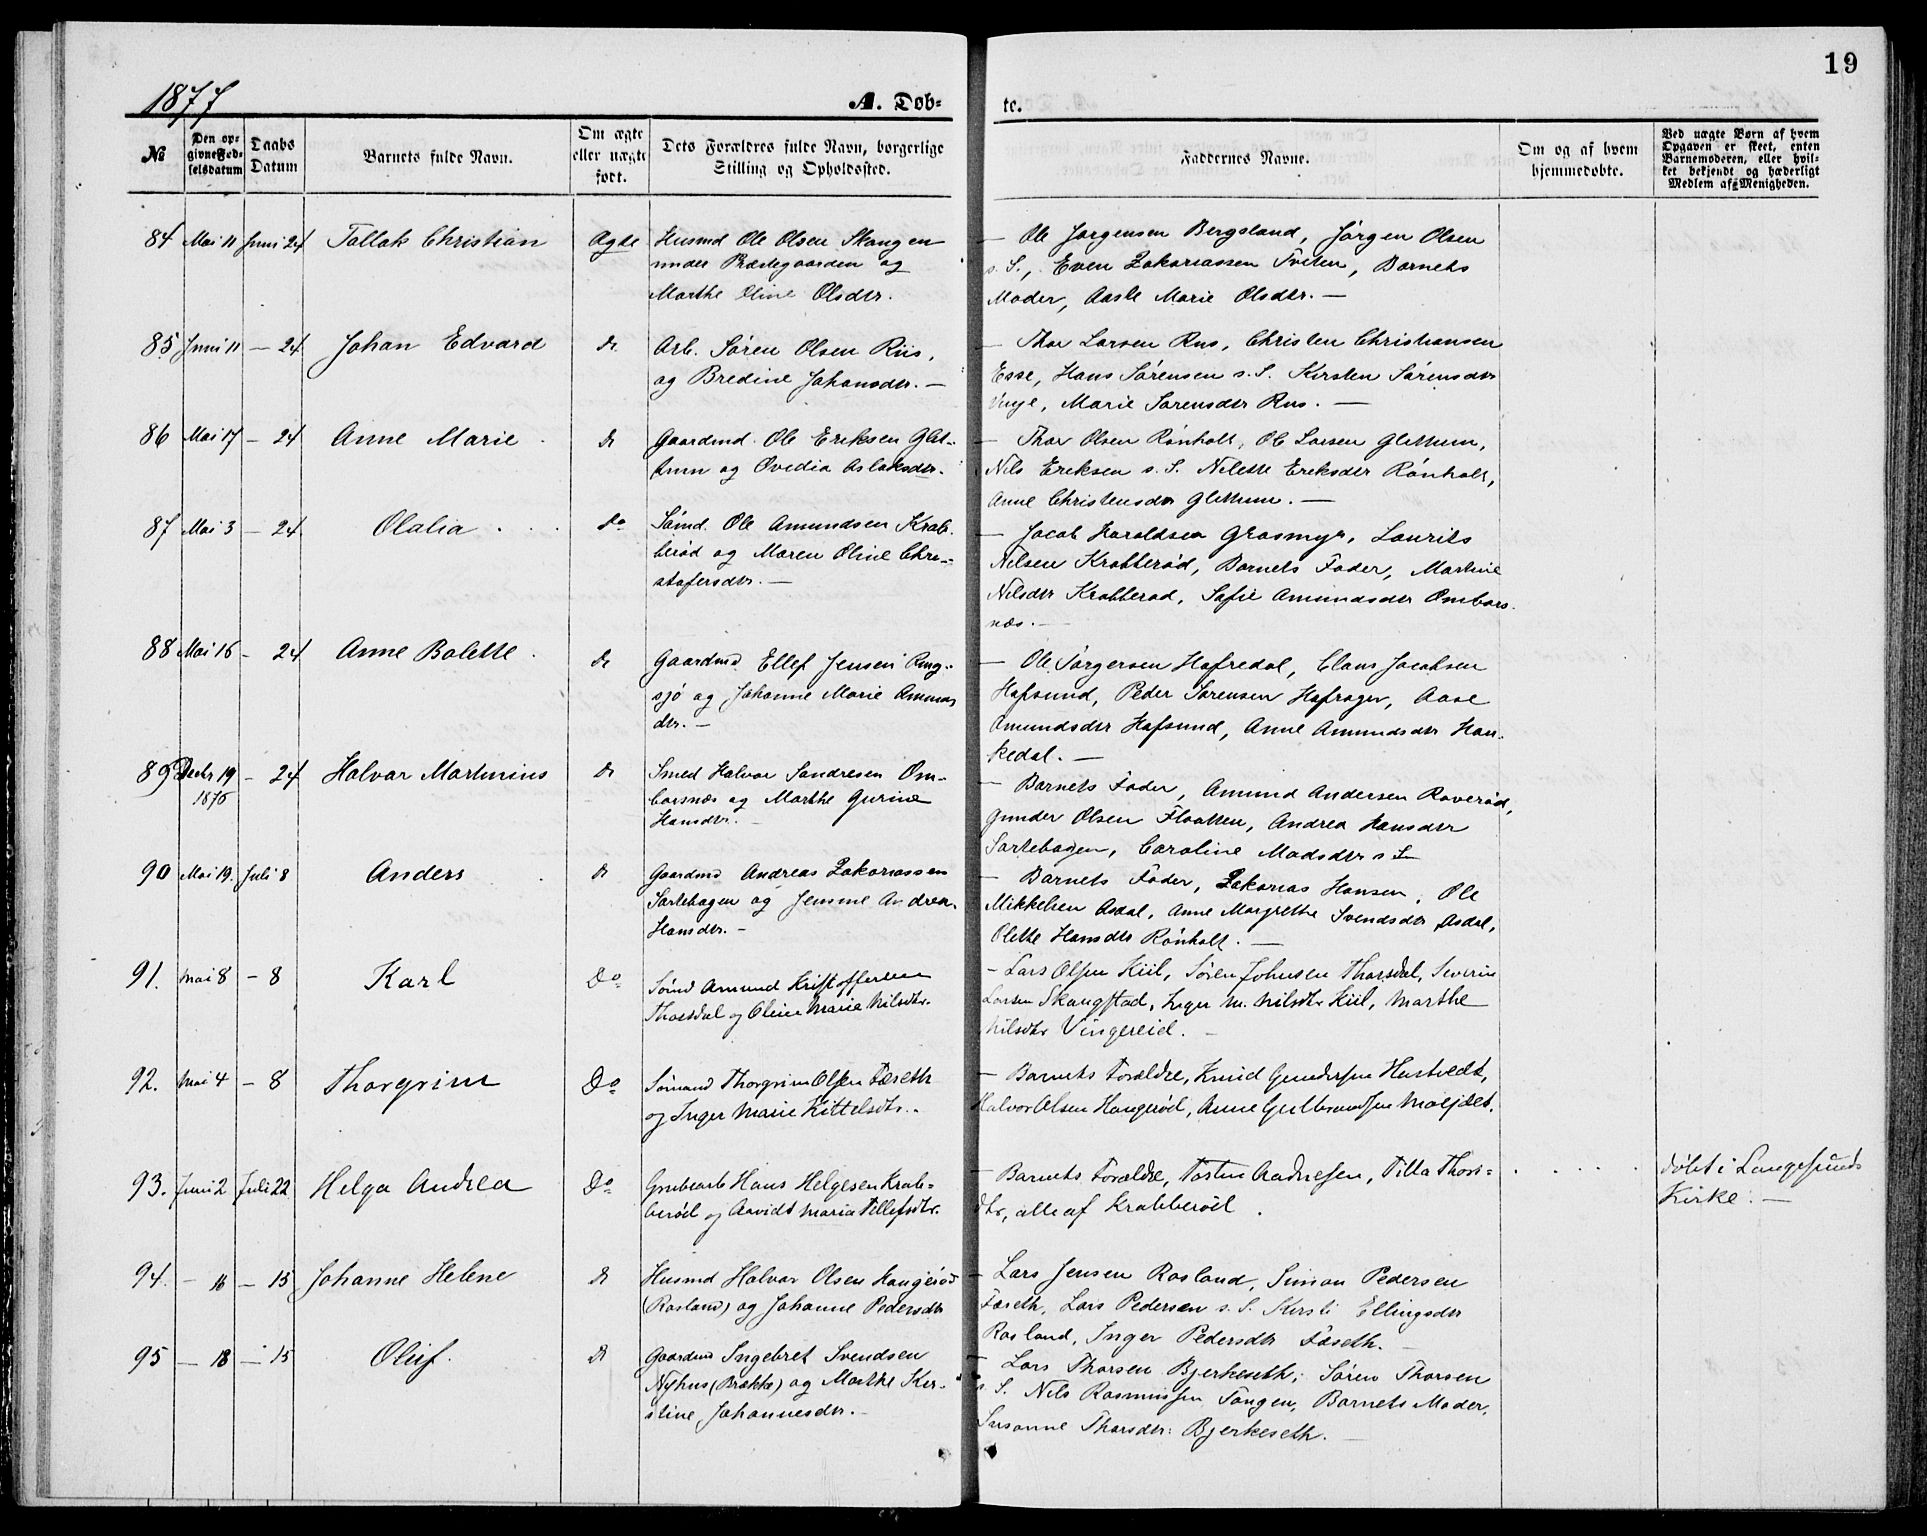 19
1877
A. Døb-
te.
№
Den op-
givne Fød-
selsdatum
Daabs
Datum
Barnets fulde Navn.
Om ægte
eller uægte
født.
Dets Forældres fulde Navn, borgerlige
Stilling og Opholdssted.
Faddernes Navne.
Om og af hvem
hjemmedøbte.
Ved uægte Børn af hvem
Opgaven er skeet, enten
Barnemoderen, eller hvil-
ket bekjendt og hæderligt
Medlem af Menigheden.
84 Mai 11 Juni 24 Tallak Christian Ægte Husmd Ole Olsen Skougen
under Præstegaarden og
Marthe Oline Olsdtr.
— Ole Jørgensen Bergsland, Jørgen Olsen
s. S., Even Zakariassen Tveten, Barnets
Moder, Aasle Marie Olsdtr. —
85 Juni 11 — 24 Johan Edvard do Arb. Søren Olsen Riis,
og Bredine Johansdtr. —
— Thor Larsen Riis, Christen Christiansen
Esse, Hans Sørensen s. S. Kirsten Sørensdtr
Vinje, Marie Sørensdtr Riis. —
86 Mai 17 — 24 Anne Marie do Gaardmd. Ole Eriksen Glit-
tum og Ovedia Aslaksdtr.
— Thor Olsen Rønholt, Ole Larsen Glittum,
Nils Eriksen s. S. Nilette Eriksdtr Rønholt,
Anne Christensdtr Glittum. —
87 Mai 3 — 24 Olalia do Sømd. Ole Amundsen Krab-
berød og Maren Oline Chri-
stofersdtr. —
— Jacob Haroldsen Grasmyr, Laurits
Nilsen Krabberød, Barnets Fader, Martine
Nilsdtr Krabberød, Sofie Amundsdtr Ombors-
næs. —
88 Mai 16 — 24 Anne Bolette do Gaardmd Ellef Jensen Ring-
sjø og Johanne Marie Amunds
dtr. —
— Ole Jørgersen Hafredal, Claus Jacobsen
Hafsund, Peder Sørensen Hafrager, Aase
Amundsdtr Hafsund, Anne Amundsdtr Hau-
kedal. —
89 Decbr 19 — 24 Halvor Martinius do Smed Halvor Sandresen Om-
1876
borsnæs og Marthe Gurine
Hansdtr. —
— Barnets Fader, Amund Andersen Roverød,
Gunder Olsen Flaatten, Andrea Hansdtr
Sortebogen, Caroline Madsdtr s. S.
90 Mai 19. Juli 8 Anders do Gaardmd Andreas Zakariassen
Sortebogen og Jensine Andrea
Hansdtr. —
— Barnets Fader, Zakarias Hansen, Ole
Mikkelsen Asdal, Anne Margrethe Svendsdtr Asdal,
Olette Hansdtr Rønholt. —
91. Mai 8 — 8 Karl Do Sømd Amund Kristoffersen
Thorsdal og Oline Marie Nilsdtr.
— Lars Olsen Kiil, Søren Johnsen Thorsdal, Severin
Larsen Skougstad, Inger M. Nilsdtr Kiil, Marthe
Nilsdtr Vingereid. —
92. Mai 4 — 8 Thorgrim Do Sømand Thorgrim Olsen Fæseth
og Inger Marie Kittelsdtr.
— Barnets Forældre, Knud Gundersen Hustvedt,
Halvor Olsen Haugerød, Anne Gulbrandsen Moejdet.
93. Juni 2 Juli 22 Helga Andrea Do Grubearb Hans Helgesen Krab-
berød og Aavidt Maria Tellefsdtr.
— Barnets Forældre, Tosten Aadnesen, Tilla Thors-
dtr, alle af Krabberød.
døbt i Langesunds
Kirke. —
94. — 16 — 15 Johanne Helene do Husmd Halvor Olsen Haugerød
(Rosland) og Johanne Pedersdtr
— Lars Jensen Rosland, Simon Pedersen
Fæseth, Lars Pedersen s. S. Kirsti Ellingsdtr
Rosland, Inger Pedersdtr Fæseth. —
95 — 18 — 15 Oluf. do Gaardmd Ingebret Svendsen
Nyhus (Brække) og Marthe Kir-
stine Johannesdtr. —
— Lars Thorsen Bjerkeseth, Søren Thorsen
s. S. Nils Rasmussen Tangen, Barnets Moder,
Susanne Thorsdtr. Bjerkeseth. —